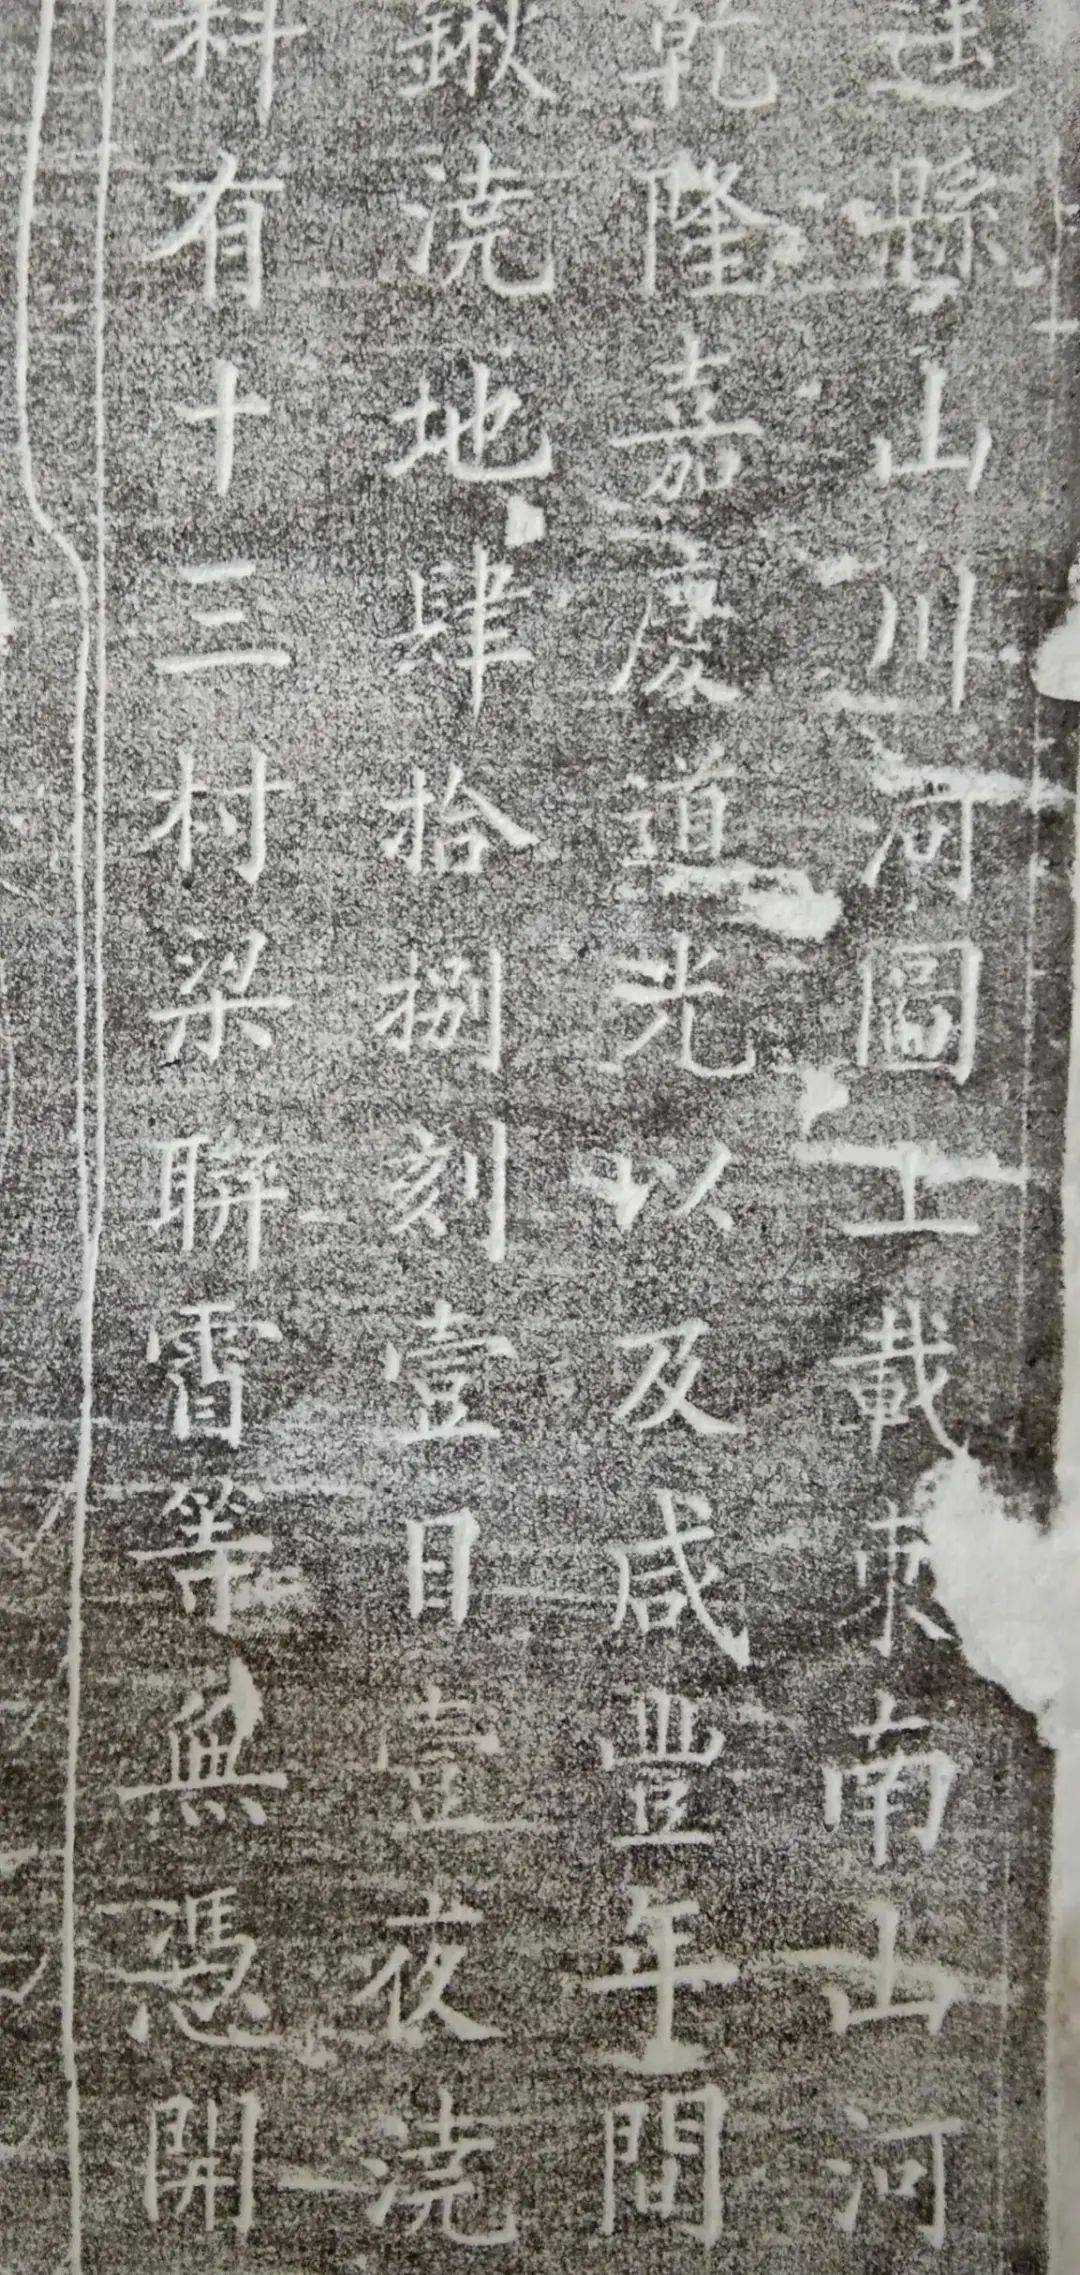 縣山川河圖上載東南山河
乾隆嘉慶道光以及咸豐年間
鍬澆地肆拾捌刻壹日壹夜澆
料有十三村梁聯霄等無憑開